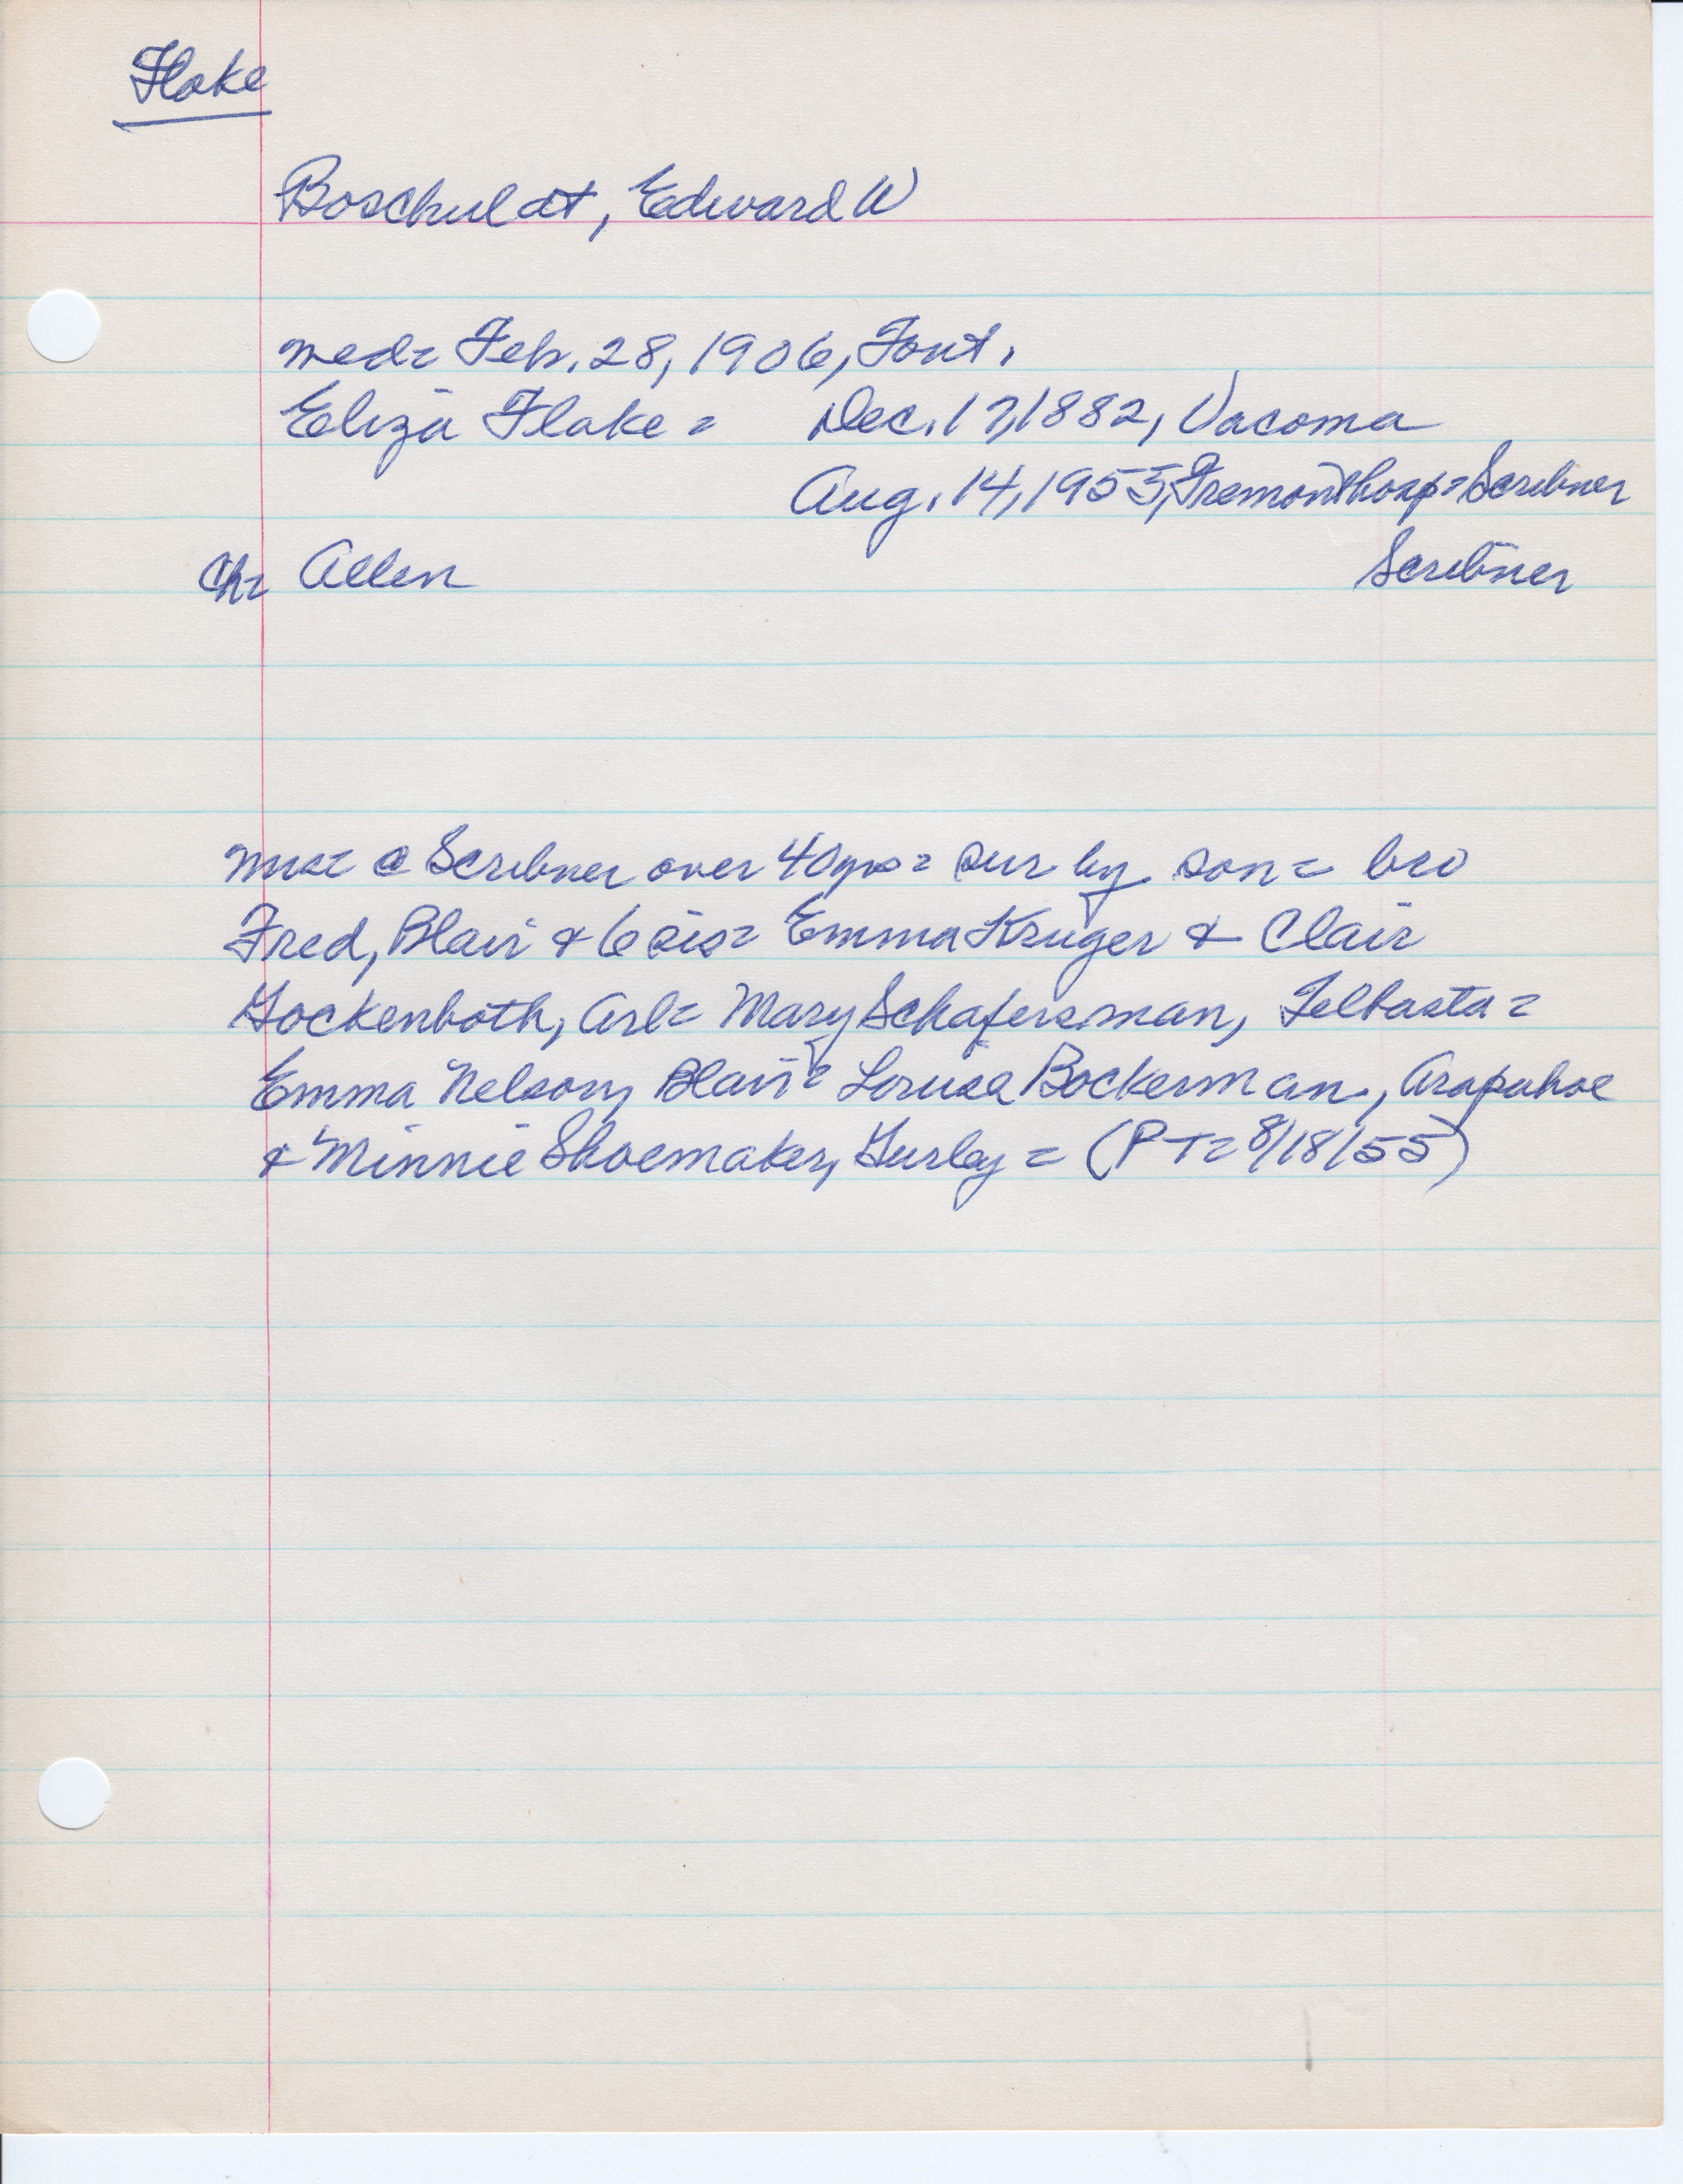 Flake
Boschuldt, Edward W
med= Feb. 28, 1906, Font.
Eliza Flake = Dec. 17, 1882, Vacoma
Aug. 14, 1955, Fremont hosp = Scribner
Ch= Allen Scribner
@ Scribner over 40 yrs = sur by son = bro
Fred, Blair & 6 sis= Emma Kruger & Clair
Gockenboth, Arl= Mary Schafersman, Telbasta =
Emma Nelson, Blair= Louise Bockerman, Arapahoe
& Minnie Shoemaker, Gurley = (PT= 8/18/55)